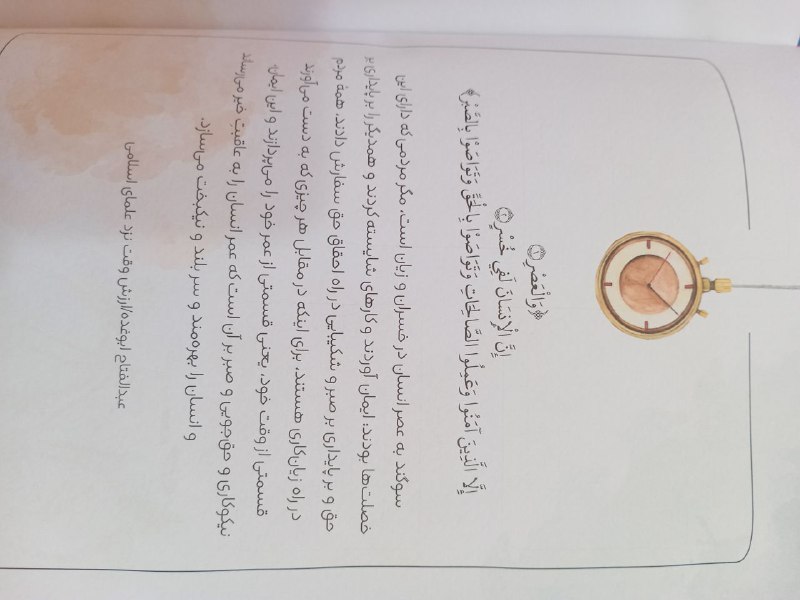 ﴿وَالْعَصْرِ ۝١
إِنَّ الْإِنسَانَ لَفِي خُسْرٍ ۝٢
إِلَّا الَّذِينَ آمَنُوا وَعَمِلُوا الصَّالِحَاتِ وَتَوَاصَوْا بِالْحَقِّ وَتَوَاصَوْا بِالصَّبْرِ﴾
سوگند به عصر انسان در خسران و زیان است، مگر مردمی که دارای این
خصلت‌ها بودند: ایمان آوردند و کارهای شایسته کردند و همدیگر را بر پایداری بر
حق و بر پایداری بر صبر و شکیبایی در راه احقاق حق سفارش دادند. همهٔ مردم
در راه زیان‌کاری هستند، برای اینکه در مقابل هر چیزی که به دست می‌آورند
قسمتی از وقت خود، یعنی قسمتی از عمر خود را می‌پردازند و این ایمان،
نیکوکاری و حق‌جویی و صبر بر آن است که عمر انسان را به عاقبت خیر می‌رساند
و انسان را بهره‌مند و سربلند و نیکبخت می‌سازد.
عبدالفتاح ابوغده/ارزش وقت نزد علمای اسلامی